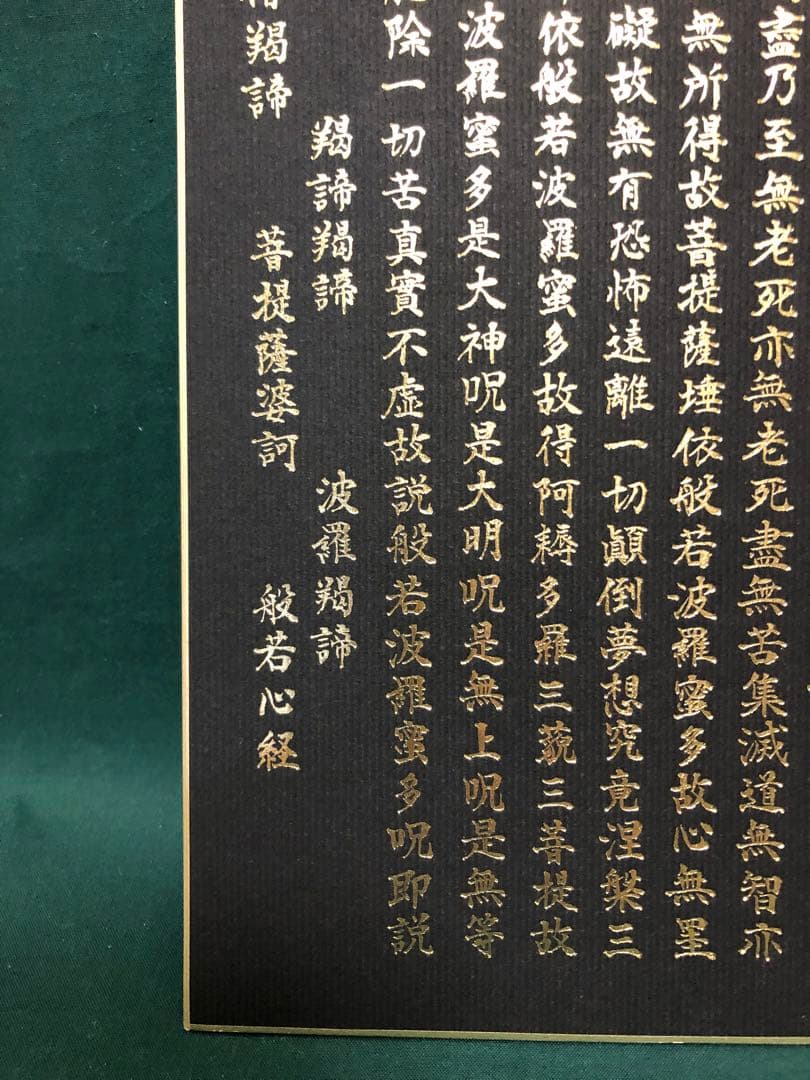 盡乃至無老死亦無老死盡無苦集滅道無智亦
無所得故菩提薩埵依般若波羅蜜多故心無罣
礙故無有恐怖遠離一切顛倒夢想究竟涅槃三
依般若波羅蜜多故得阿耨多羅三藐三菩提故
波羅蜜多是大神呪是大明呪是無上呪是無等
除一切苦真實不虚故説般若波羅蜜多呪即説
羯諦羯諦 波羅羯諦
羯諦 菩提薩婆訶 般若心経